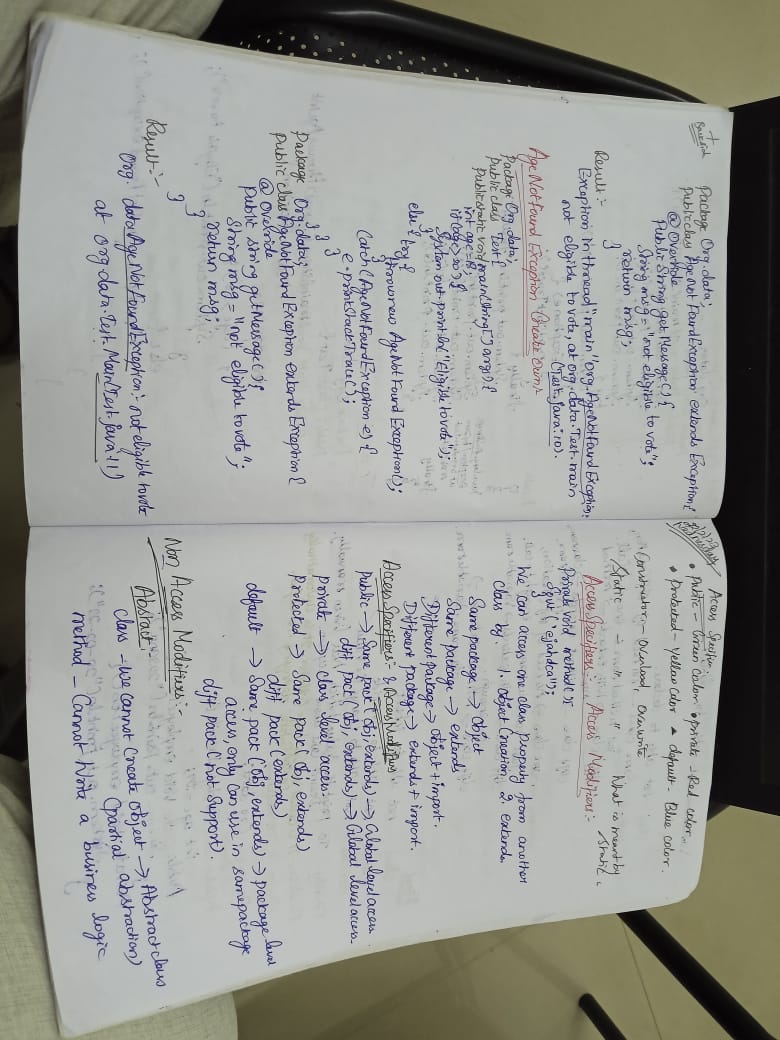 Package Org.data;
Public class AgeNotFoundException extends Exception{
@ Override
Public String getMessage() {
String msg = "not eligible to vote";
return msg;
}
Result:-
Exception in thread "main" org.AgeNotFoundException:
not eligible to vote, at org.data.Test.main
(Test.java:10).
AgeNotFound Exception Create Own:-
Package Org.data;
Public class Test {
Public static void main(String[] args) {
int age=18;
if (age>20) {
System.out.println("Eligible to vote");
}
else { try {
throw new AgeNotFoundException();
}
Catch (AgeNotFoundException e) {
e.printStackTrace();
}
} } }
Package Org.data;
Public class AgeNotFoundException extends Exception {
@ Override
Public string getMessage() {
String msg = "not eligible to vote";
return msg;
}
}
Result:-
Org. data. AgeNotFoundException:- not eligible to vote
at org.data.Test.Main(Test.java:11)
Wednesday
Access Specifier:-
• Public - Green Color • private - Red color
• protected - Yellow Color ▲ default - Blue color.
Constructor - Overload, overwrite
Static - " " What is meant by
Static.
Access Specifiers:- Access Modifiers:-
Private void method() {
Sout ("ejahdca");
}
We can access one class property from another
class by. 1. Object Creation 2. extends
Same package → Object
Same package → extends
Different package → object + import.
Different package → extends + import.
Access Specifiers:- & Access Modifiers.
Public → Same pack (obj, extends) → Global level access
diff pack (obj, extends) → Global level access.
Private → class level access.
Protected → Same pack (obj, extends)
diff pack (extends)
default → Same pack (obj, extends) → package level
access, only can use in samepackage
diff pack (not support).
Non Access Modifiers:-
Abstract:
class - we cannot create object → Abstract class
(partial abstraction)
method - Cannot Write a business logic